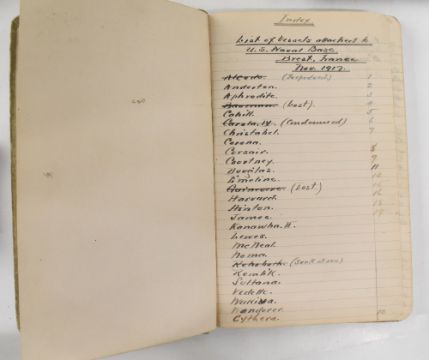 Index
List of Vessels attached to
U.S. Naval Base
Brest, France
Nov. 1917.
Alcedo. (Torpedoed) 1
Anderton. 2
Aphrodite. 3
(Lost). 4
Cahill. 5
Carola IV. (Condemned) 6
Christabel. 7
Corona.
Corsair. 8
Courtney. 9
Douglas. 11
Emeline. 12
Guinevere (Lost)
Harvard.
Hinton. 13
James. 14
Kanawha II.
Lewes.
McNeal.
Noma.
Rehoboth
Remlik.
Sultana.
Vedette.
Wakiva
Wanderer.
Cythera.